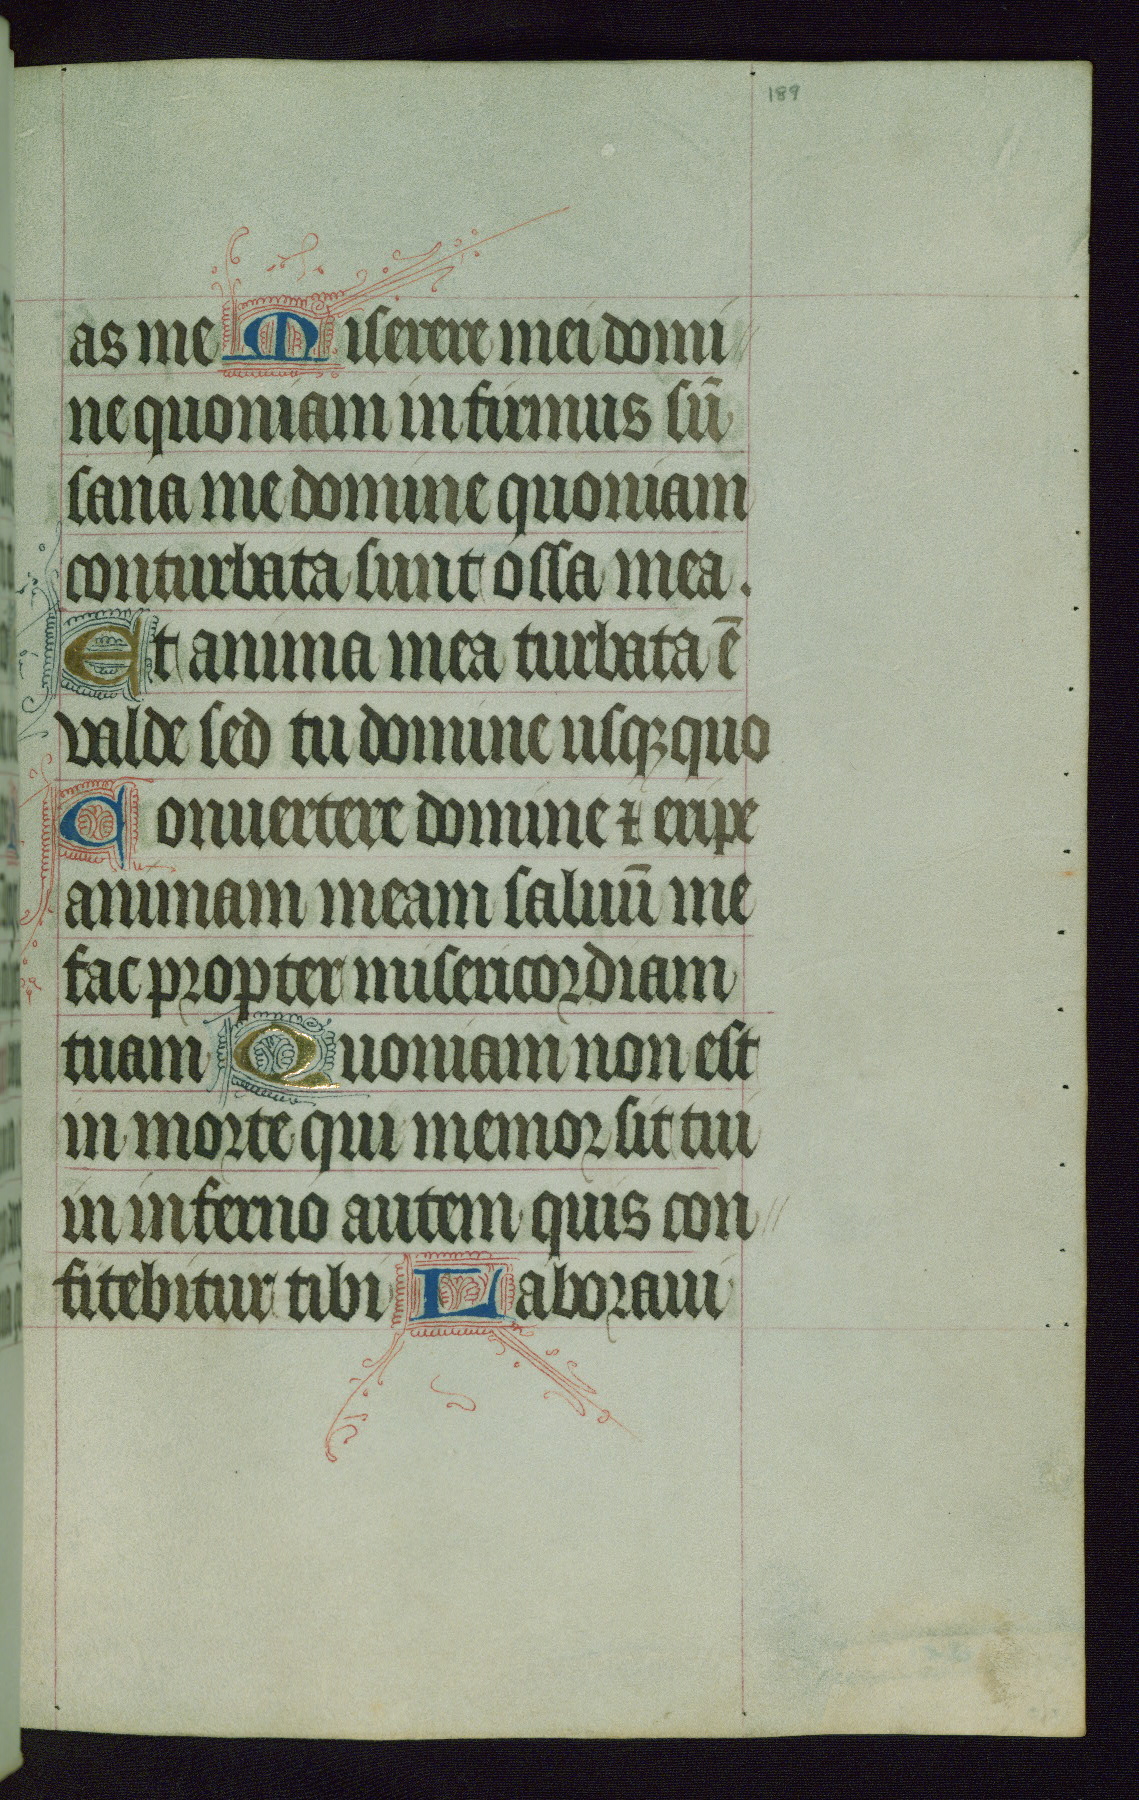 189
as me Miserere mei domi
ne quoniam infirmus sū
sana me domine quoniam
conturbata sunt ossa mea.
Et anima mea turbata ē
valde sed tu domine usqꝫquo
Conuertere domine ⁊ eripe
animam meam saluū me
fac propter misericordiam
tuam Quoniam non est
in morte qui memor sit tui
in inferno autem quis con
fitebitur tibi Laboraui